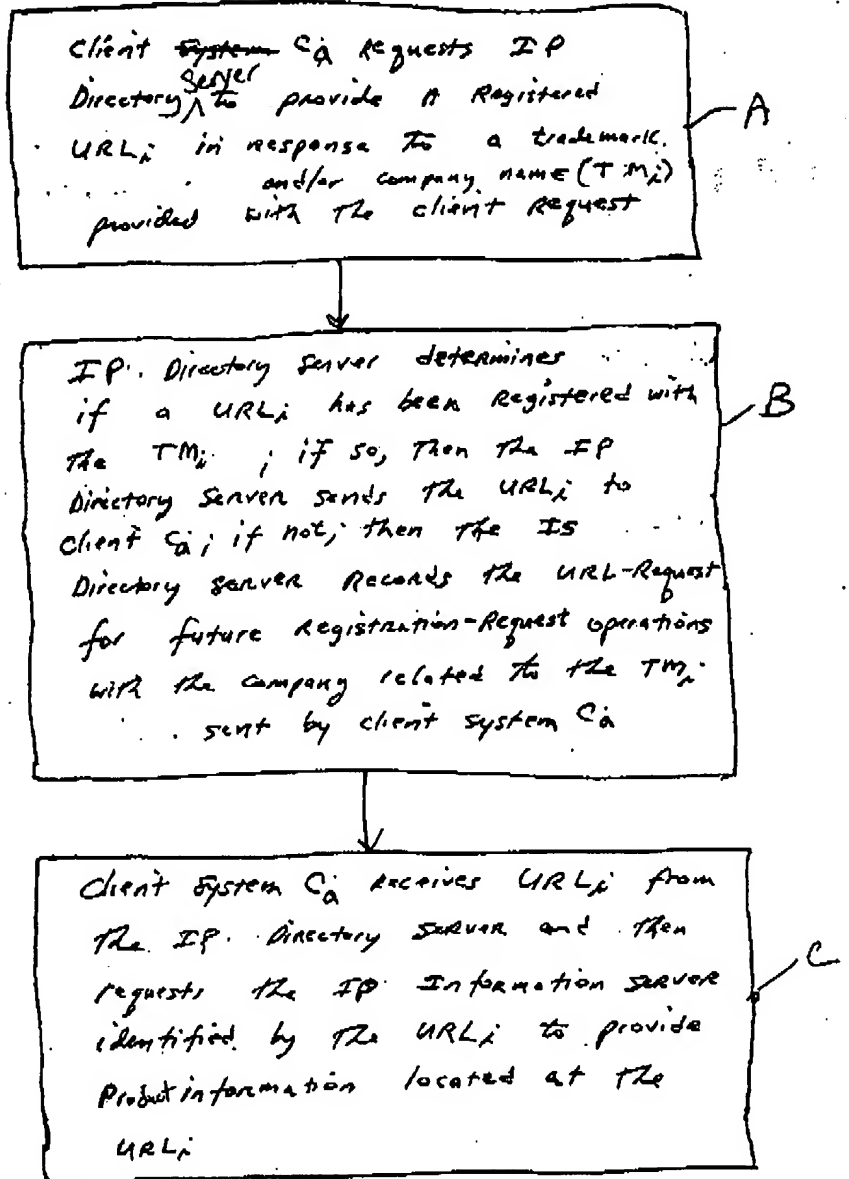 Client System Ca Requests IP
Server
Directory ^ to provide A Registered
URLi in response to a trademark
and/or company name (TMi)
provided with the client Request
A
IP. Directory Server determines
if a URLi has been Registered with
the TMi ; if so, then the IP
Directory Server sends the URLi to
client Ca; if not, then the IS
Directory server Records the URL-Request
for future Registration-Request operations
with the company related to the TMi
sent by client system Ca
B
Client System Ca Receives URLi from
the IP. Directory Server and then
requests the IP Information Server
identified by the URLi to provide
Product information located at the
URLi
C